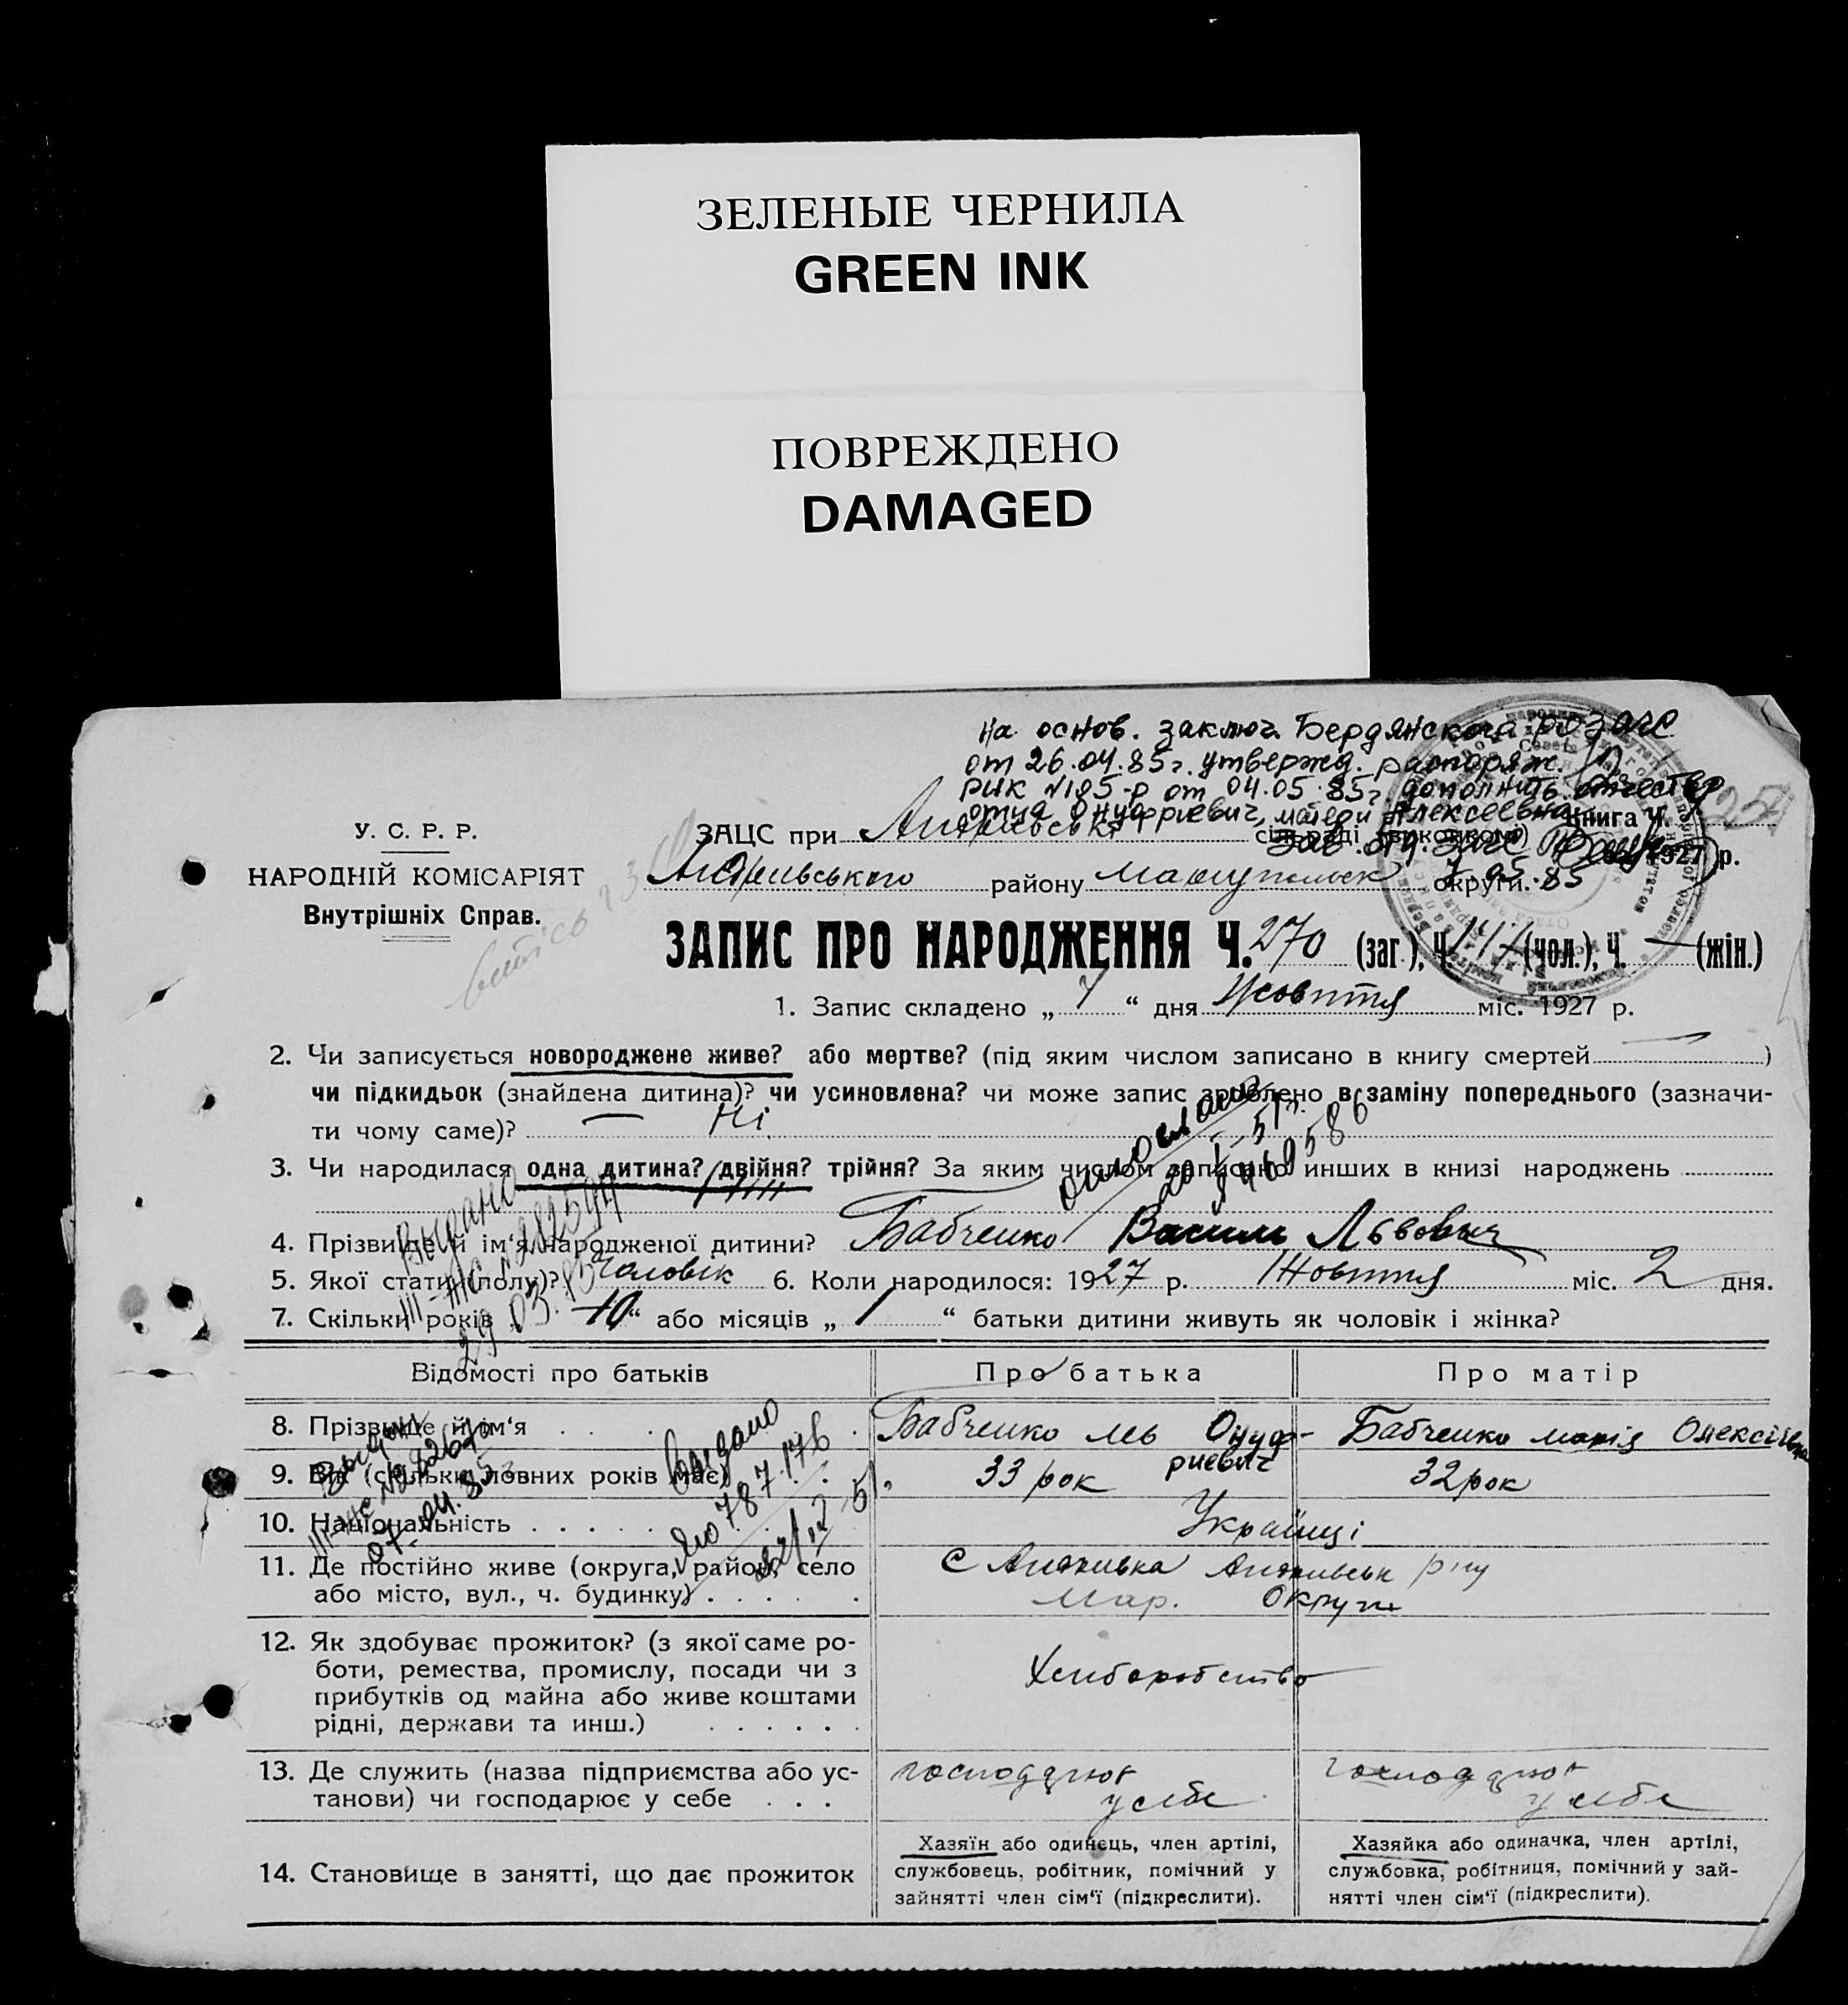 ЗЕЛЕНЫЕ ЧЕРНИЛА
GREEN INK
ПОВРЕЖДЕНО
DAMAGED
на основ. заключ. Бердянского РОЗАГС
от 26.04.85г. утвержд. распоряж.
РИК №195-р от 04.05.85г. дополнить отчество
отца Онуфриевич, матери Алексеевна
зав. отд. ЗАГС
7.05.85
254
У. С. Р. Р.
НАРОДНІЙ КОМІСАРІЯТ
Внутрішніх Справ.
ЗАЦС при Андрівській сільраді (виконкомі) Книга Ч.
Андрівського району Маріупольск округи. 1927 р.
ЗАПИС ПРО НАРОДЖЕННЯ Ч. 270 (заг.), Ч. 147 (чол.), Ч. — (жін.)
1. Запис складено „ 7 “ дня Жовтня міс. 1927 р.
2. Чи записується новороджене живе? або мертве? (під яким числом записано в книгу смертей — )
чи підкидьок (знайдена дитина)? чи усиновлена? чи може запис зроблено в заміну попереднього (зазначи-
ти чому саме)? — Ні
3. Чи народилася одна дитина? двійня? трійня? За яким числом записано инших в книзі народжень
4. Прізвище й ім‘я народженої дитини? Бабченко Василь Львович
5. Якої стати (полу)? Чоловік 6. Коли народилося: 1927 р. Жовтня міс. 2 дня.
7. Скільки років 10 “ або місяців „ “ батьки дитини живуть як чоловік і жінка?
Выдано
29.03.85
51г.
469586
Відомості про батьків Про батька Про матір
8. Прізвище й ім‘я Бабченко Лев Онуф-риевич Бабченко Марія Олексіївна
9. Вік (скільки повних років має) 33 рок 32 рок
10. Національність Українці
11. Де постійно живе (округа, район, село С Андрівка Андрівськ р-ну
або місто, вул., ч. будинку) Мар. Округи
Выдано
04.85
Выдано
787176
12. Як здобуває прожиток? (з якої саме ро-
боти, ремества, промислу, посади чи з Хліборобство
прибутків од майна або живе коштами
рідні, держави та инш.)
13. Де служить (назва підприємства або ус-
танови) чи господарює у себе
господарює у себе господарює у себе
14. Становище в занятті, що дає прожиток
Хазяїн або одинець, член артілі,
службовець, робітник, помічний у
зайнятті член сім‘ї (підкреслити).
Хазяйка або одиначка, член артілі,
службовка, робітниця, помічний у зай-
нятті член сім‘ї (підкреслити).